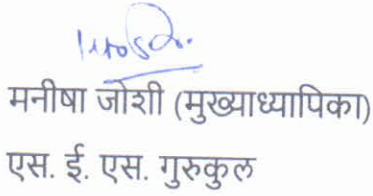 मनीषा जोशी (मुख्याध्यापिका)
एस. ई. एस. गुरुकुल